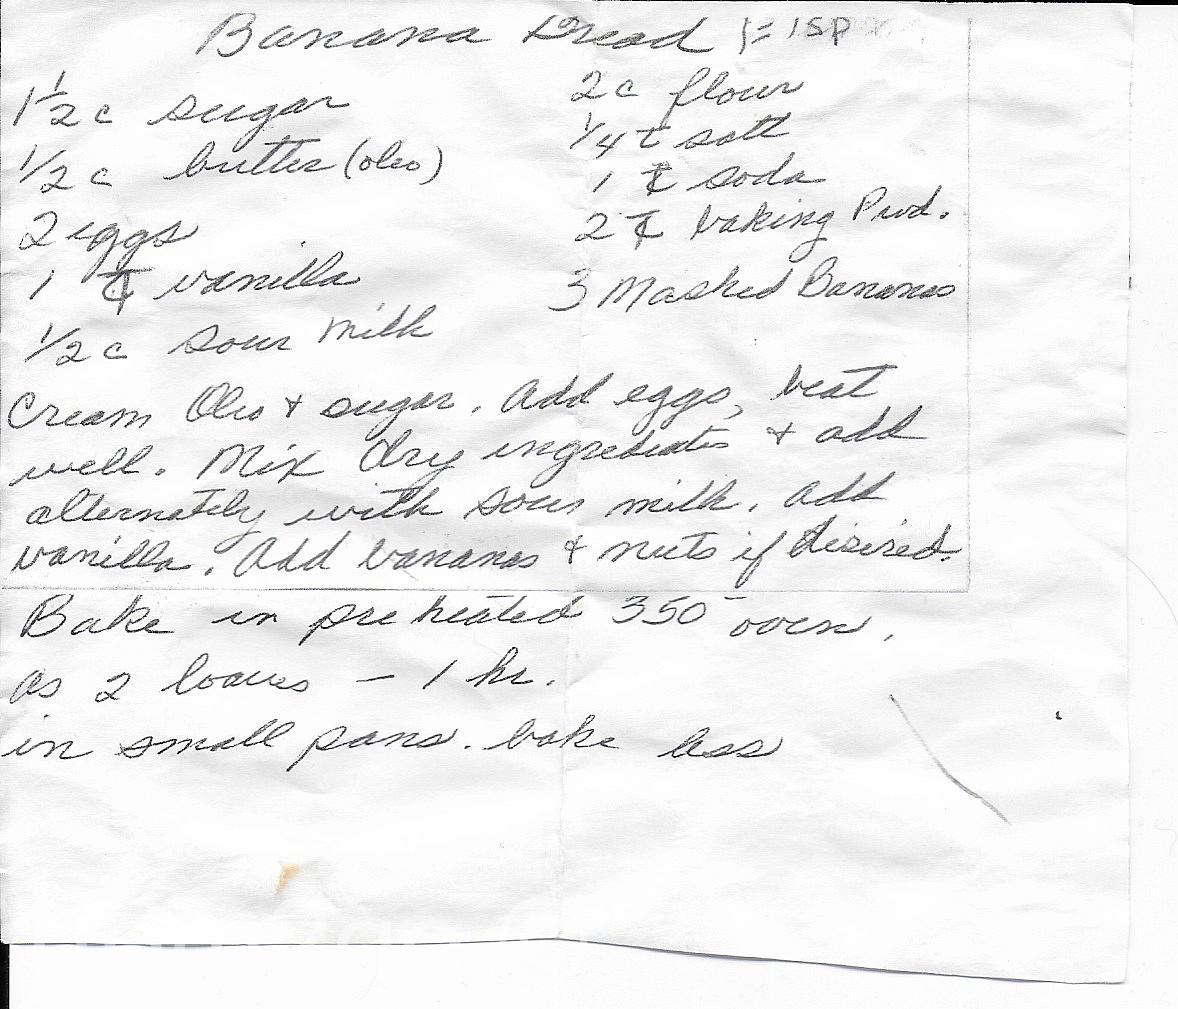 Banana Bread
1 1/2 c sugar
1/2 c butter (oleo)
2 eggs
1 t vanilla
1/2 c sour milk
2 c flour
1/4 t salt
1 t soda
2 t baking Pwd.
3 Mashed Bananas
Cream Oleo & sugar. Add eggs, beat
well. Mix dry ingrediats & add
alternately with sour milk. Add
vanilla. Add bananas & nuts if disired.
Bake in preheated 350° oven.
as 2 loaves - 1 hr.
in small pans. bake less